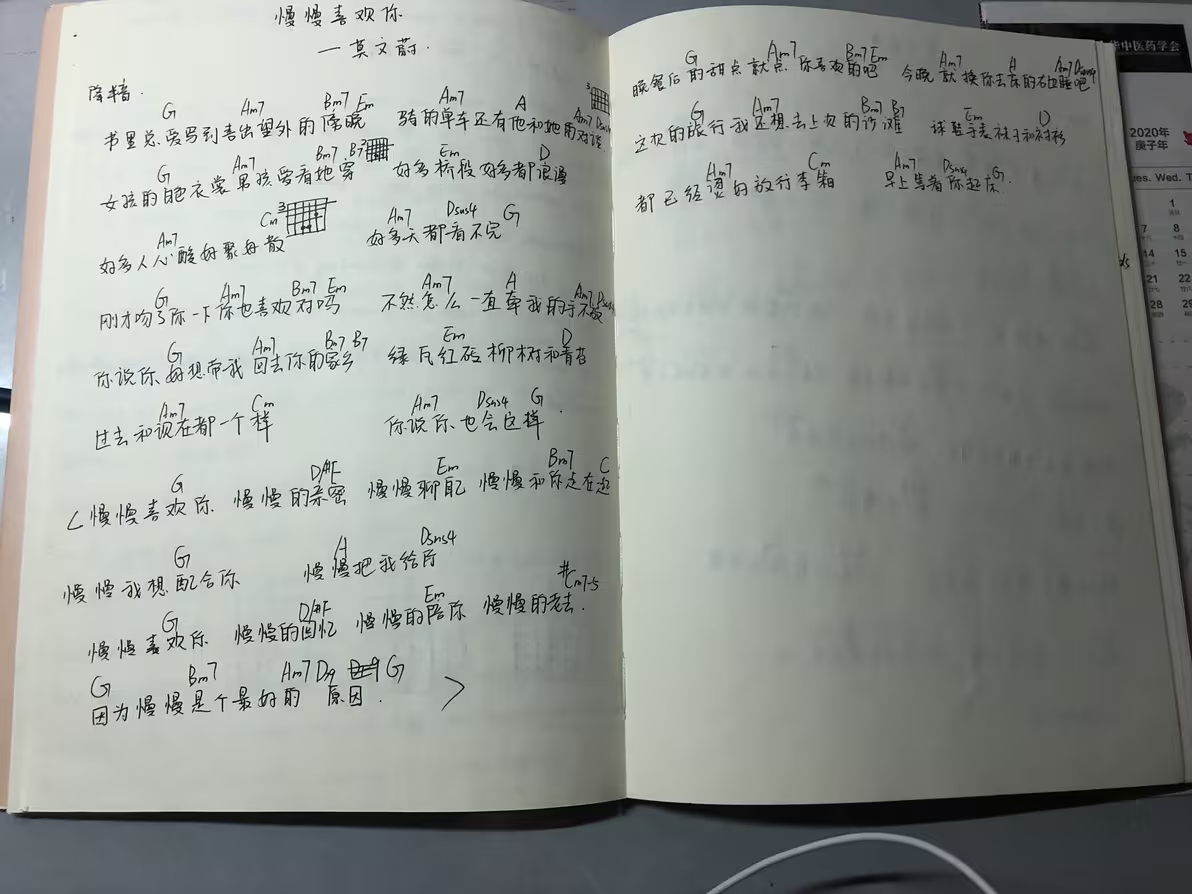 慢慢喜欢你
—莫文蔚.
降半音.
G Am7 Bm7 Em Am7 A Am7 Dsus4
书里总爱写到喜出望外的傍晚 骑的单车还有他和她的对谈
G Am7 Bm7 B7 Em D
女孩的白色衣裳男孩爱看她穿 好多桥段 好多都浪漫
Am7 Cm 3 Am7 Dsus4 G
好多人心酸好聚好散 好多天都看不完
G Am7 Bm7 Em Am7 A Am7 Dsus4
刚才吻了你一下你也喜欢对吗 不然怎么一直牵我的手不放
G Am7 Bm7 B7 Em D
你说你好想带我回去你的家乡 绿瓦红砖柳树和青苔
Am7 Cm Am7 Dsus4 G
过去和现在都一个样 你说你也会这样.
G D/#F Em Bm7 C
<慢慢喜欢你 慢慢的亲密 慢慢聊自己 慢慢和你走在一起
G A Dsus4
慢慢我想配合你 慢慢把我给你
G D/#F Em #Cm7-5
慢慢喜欢你 慢慢的回忆 慢慢的陪你 慢慢的老去.
G Bm7 Am7 D9 G
因为慢慢是个最好的 原因. >
G Am7 Bm7 Em Am7 A Am7 Dsus4
晚餐后的甜点就点你喜欢的吧 今晚就换你去床的右边睡吧
G Am7 Bm7 B7 Em D
这次的旅行我还想去上次的沙滩 球鞋手表袜子和衬衫
Am7 Cm Am7 Dsus4 G
都已经烫好放行李箱 早上等着你起床.
华中医药学会
2020年
庚子年
Wed.
1
7 8
14 15
21 22
28 29